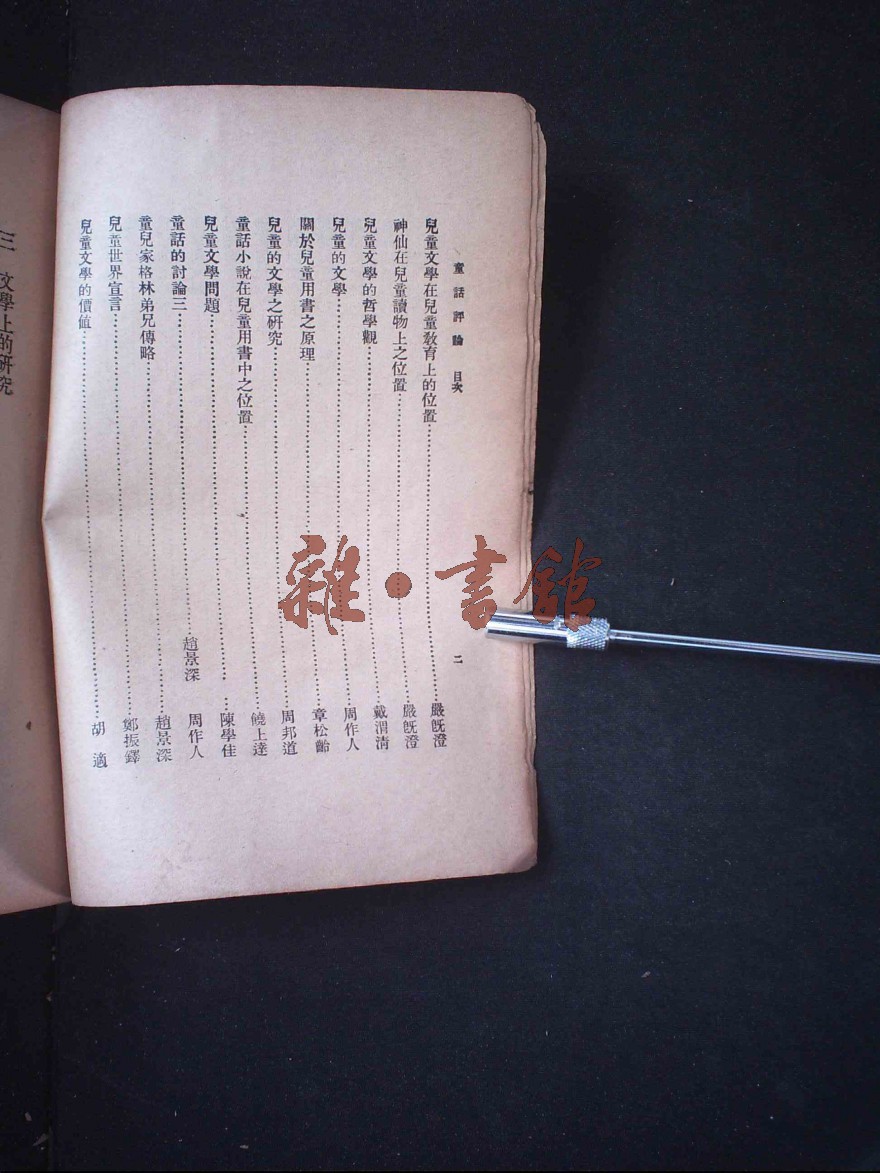 童話評論 目次 二
兒童文學在兒童教育上的位置……嚴旣澄
神仙在兒童讀物上之位置……嚴旣澄
兒童文學的哲學觀……戴渭清
兒童的文學……周作人
關於兒童用書之原理……章松齡
兒童的文學之研究……周邦道
童話小說在兒童用書中之位置……饒上達
兒童文學問題……陳學佳
童話的討論三……趙景深 周作人
童兒家格林弟兄傳略……趙景深
兒童世界宣言……鄭振鐸
兒童文學的價值……胡適
三 文學上的研究
雜·書館